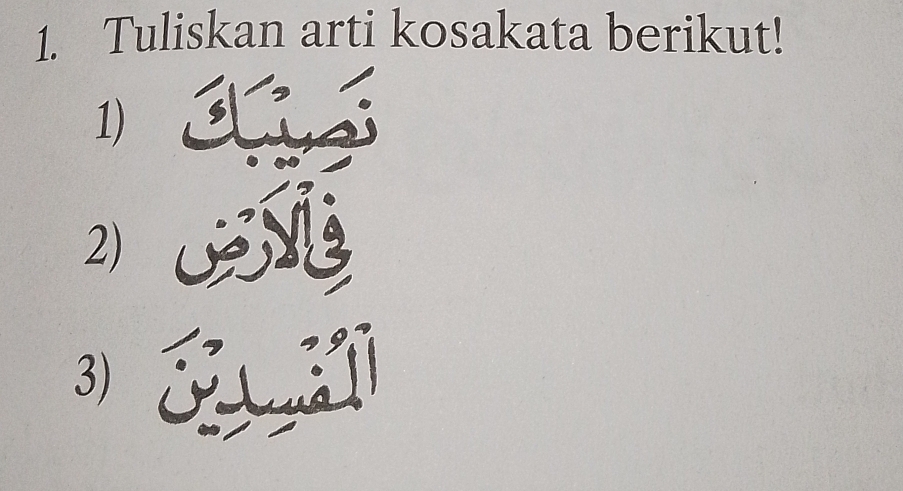 1. Tuliskan arti kosakata berikut!
1) نَصِيْبَكَ
2) فِى الْاَرْضِ
3) الْمُفْسِدِيْنَ